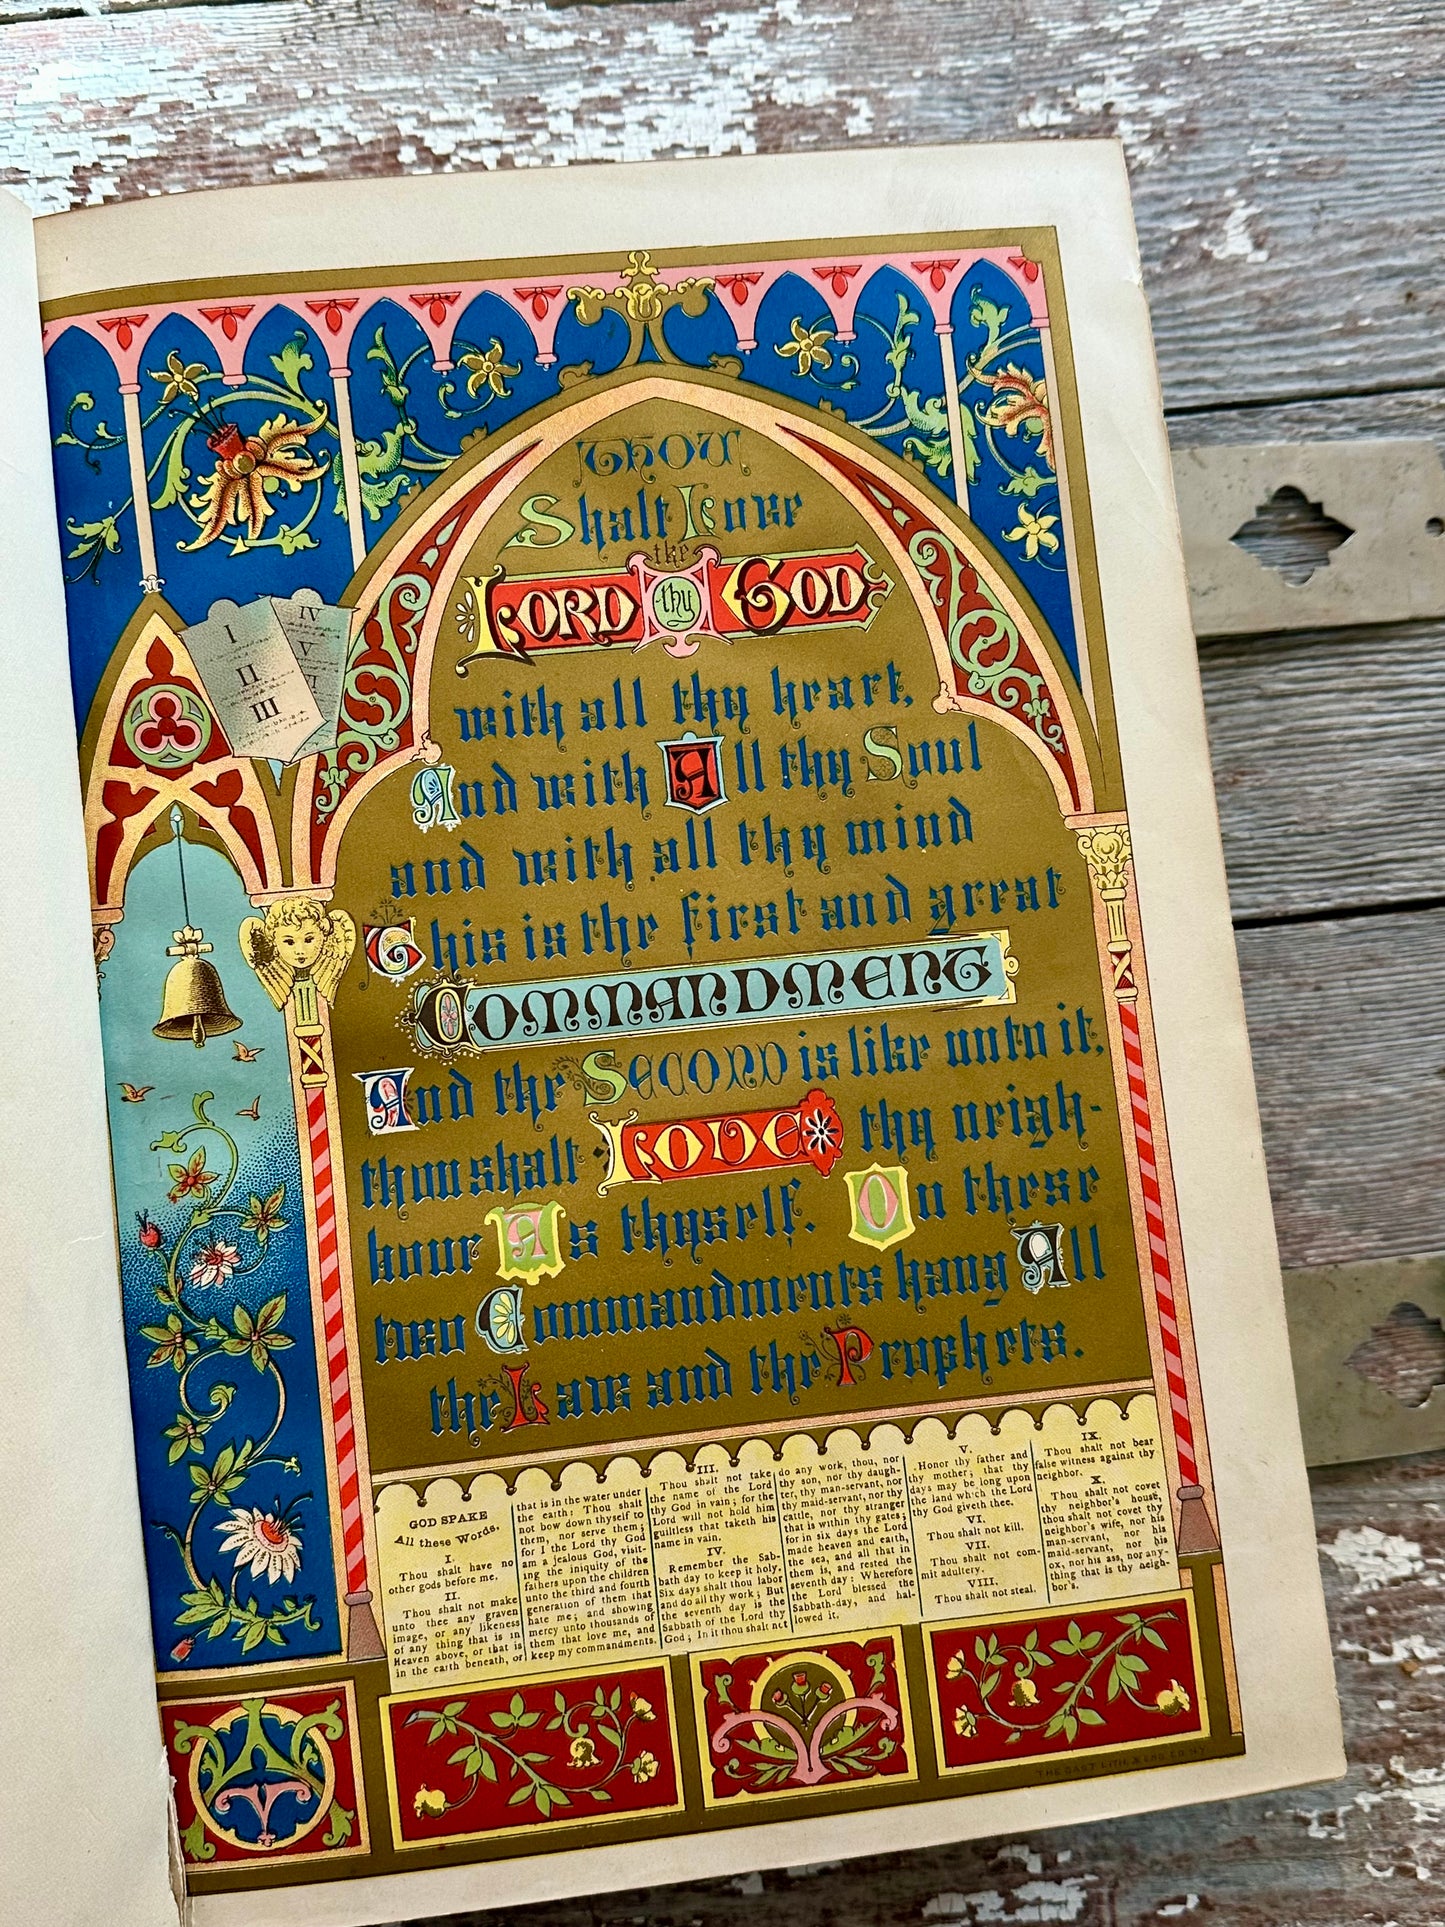 I
II
III
IV
V
VI
Thou
Shalt Love
the
LORD thy GOD
with all thy heart,
And with All thy Soul
and with all thy mind
This is the first and great
COMMANDMENT
And the SECOND is like unto it,
thou shalt LOVE thy neigh-
bour As thyself. On these
two Commandments hang All
the Law and the Prophets.
GOD SPAKE
All these Words.
I.
Thou shalt have no
other gods before me.
II.
Thou shalt not make
unto thee any graven
image, or any likeness
of any thing that is in
Heaven above, or that is
in the earth beneath, or
that is in the water under
the earth: Thou shalt
not bow down thyself to
them, nor serve them;
for I the Lord thy God
am a jealous God, visit-
ing the iniquity of the
fathers upon the children
unto the third and fourth
generation of them that
hate me; and showing
mercy unto thousands of
them that love me, and
keep my commandments.
III.
Thou shalt not take
the name of the Lord
thy God in vain; for the
Lord will not hold him
guiltless that taketh his
name in vain.
IV.
Remember the Sab-
bath day to keep it holy.
Six days shalt thou labor
and do all thy work; But
the seventh day is the
Sabbath of the Lord thy
God; In it thou shalt not
do any work, thou, nor
thy son, nor thy daugh-
ter, thy man-servant, nor
thy maid-servant, nor thy
cattle, nor thy stranger
that is within thy gates;
for in six days the Lord
made heaven and earth,
the sea, and all that in
them is, and rested the
seventh day: Wherefore
the Lord blessed the
Sabbath-day, and hal-
lowed it.
V.
Honor thy father and
thy mother; that thy
days may be long upon
the land which the Lord
thy God giveth thee.
VI.
Thou shalt not kill.
VII.
Thou shalt not com-
mit adultery.
VIII.
Thou shalt not steal.
IX.
Thou shalt not bear
false witness against thy
neighbor.
X.
Thou shalt not covet
thy neighbor's house,
thou shalt not covet thy
neighbor's wife, nor his
man-servant, nor his
maid-servant, nor his
ox, nor his ass, nor any-
thing that is thy neigh-
bor's.
THE GAST LITH. & ENG. CO. N.Y.